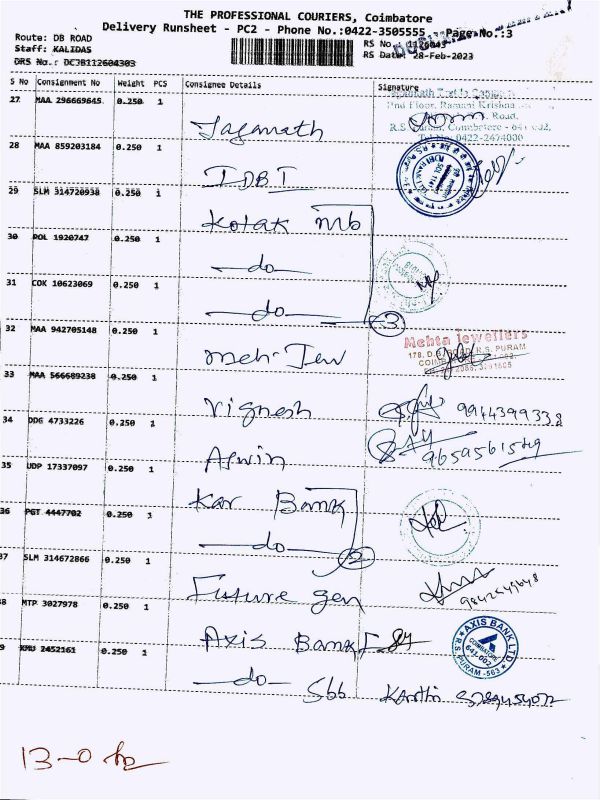 THE PROFESSIONAL COURIERS, Coimbatore
Delivery Runsheet - PC2 - Phone No.:0422-3505555 Page No.:3
Route: DB ROAD
Staff: KALIDAS
DRS No.: DCJB112604303
RS No.: 1126043
RS Date: 28-Feb-2023
S No Consignment No Weight PCS Consignee Details Signature
27 MAA 296669645 0.250 1 Jaganath
2nd Floor, Ramani Krishna
Road,
R.S Puram, Coimbatore - 641 002,
Tel No: 0422-2474000
28 MAA 859203184 0.250 1 IDBI
29 SLM 314720938 0.250 1 Kotak mb
30 ROL 1920747 0.250 1 -do-
31 COK 10623069 0.250 1 -do- 3
32 MAA 942705148 0.250 1 mehr Jew
Mehta Jewellers
33 MAA 566689238 0.250 1 Vignesh 9944399338
34 DDG 4733226 0.250 1 Aswin
35 UDP 17337097 0.250 1 Kar Bank
36 PGT 4447702 0.250 1 -do- 2
37 SLM 314672866 0.250 1 Future gen
38 MTP 3027978 0.250 1 Axis Bank
AXIS BANK LTD
COIMBATORE
641-002
R.S. PURAM -563
39 KMU 2452161 0.250 1 -do-
Sbb Karthi
13-0